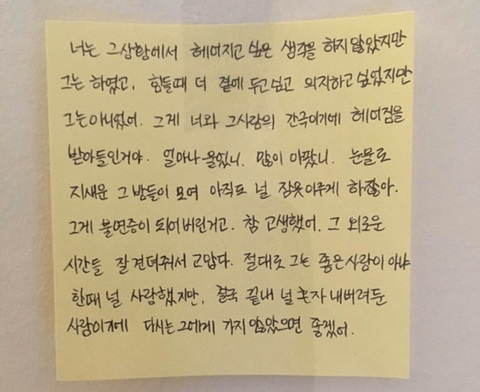 너는 그상황에서 헤여지고 싶은 생각을 하지 않았지만
그는 하였고, 힘들때 더 곁에 두고싶고 의지하고 싶었지만
그는아니였어. 그게 너와 그사람의 간극이기에 헤여짐을
받아들인거야. 얼마나 울었니. 많이 아팠니. 눈물로
지새운 그 밤들이 모여 아직도 널 잠못이루게 하잖아.
그게 불면증이 되어버린거고. 참 고생했어. 그 외로운
시간들 잘 견뎌줘서 고맙다. 절대로 그는 좋은사람이 아냐
한때 널 사랑했지만, 결국 끝내 널 혼자 내버려둔
사람이기에 다시는 그에게 가지 않았으면 좋겠어.